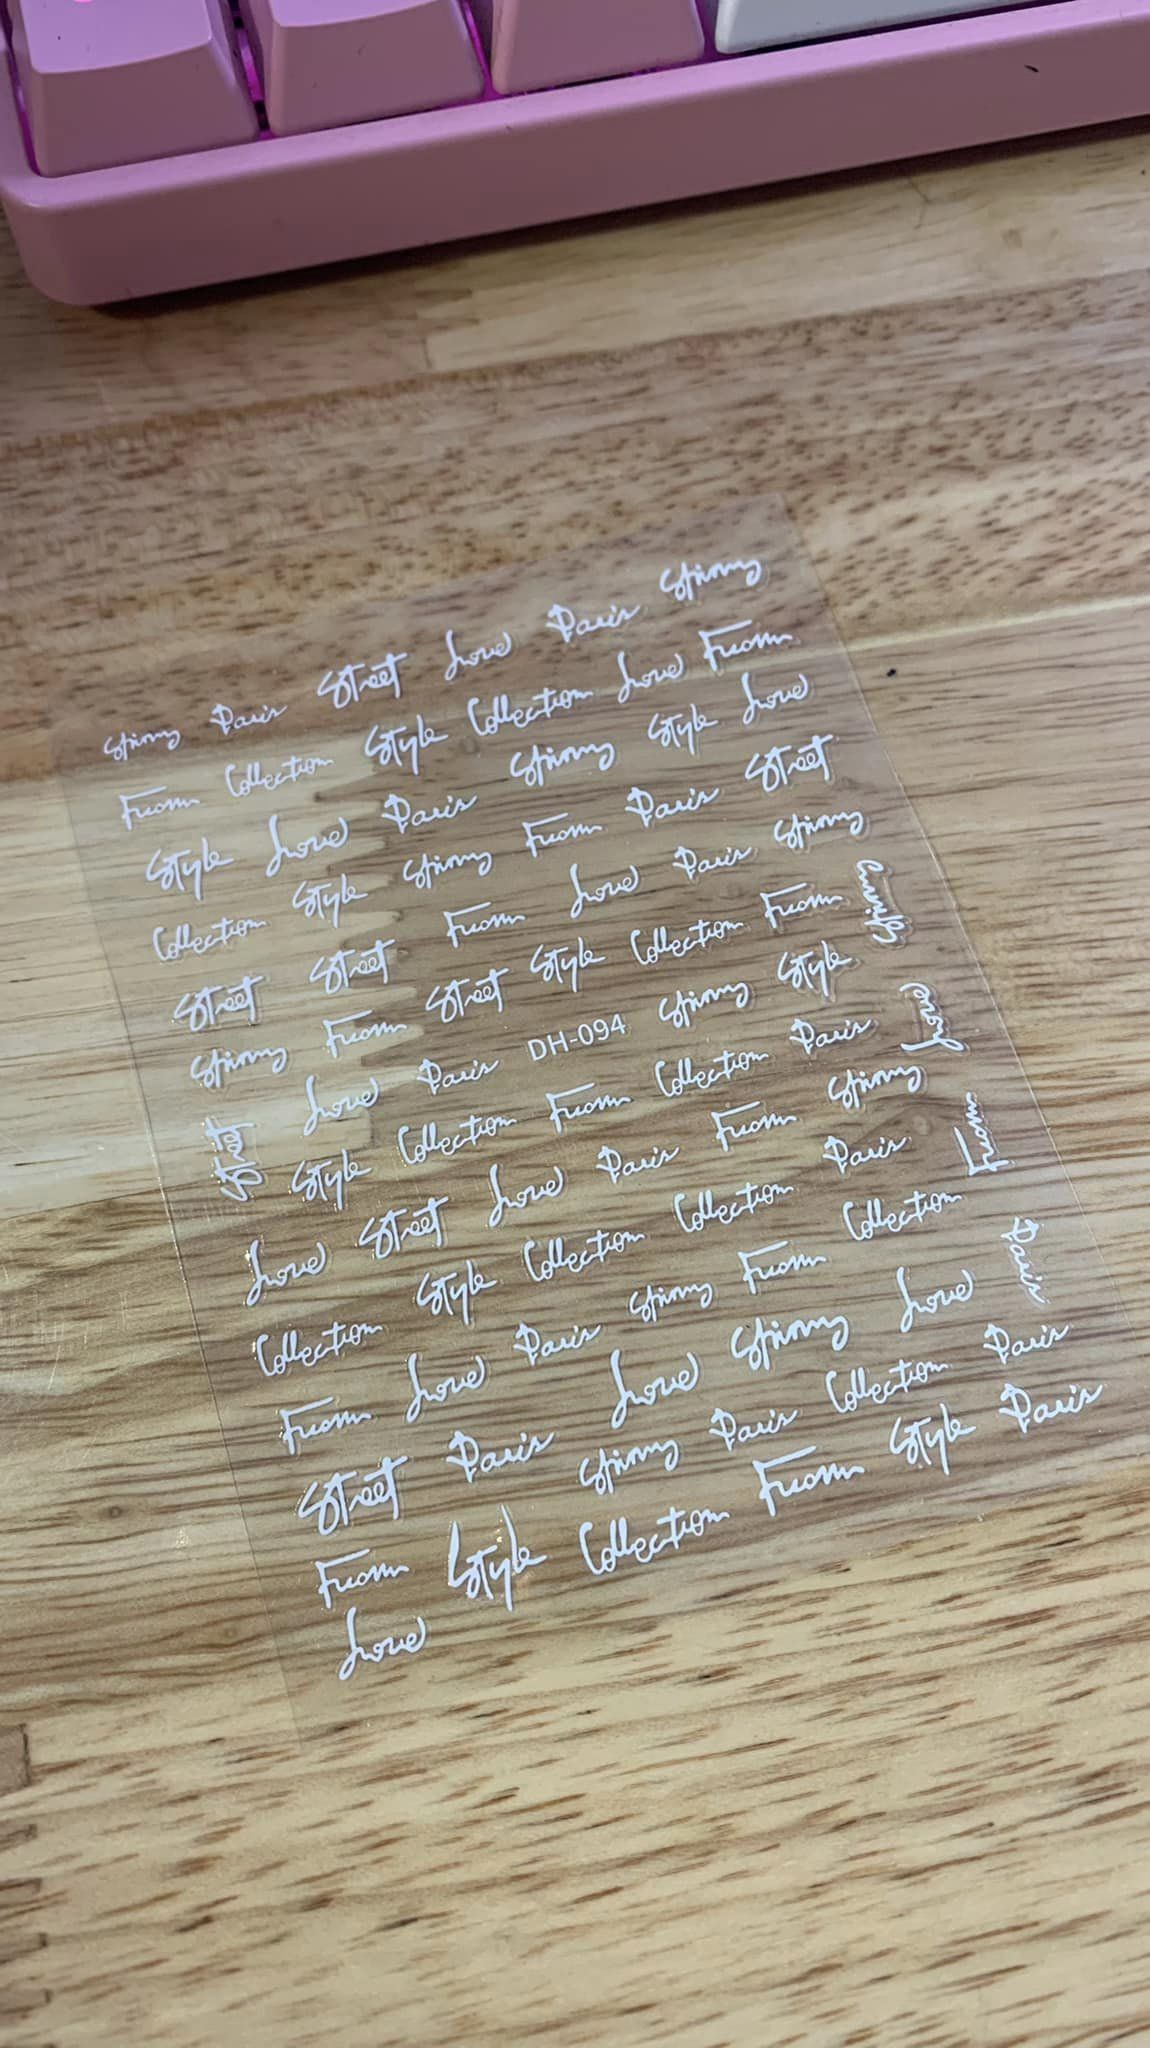 Paris Street Love Paris
From Collection Style Collection Love From
Style Love Paris Style Love
Collection Style From Paris Street
Street Street From Love Paris
From Street Style Collection From
Street Love Paris DH-094 Style Love
Style Collection From Collection Paris
Love Street Love Paris From From
Collection Style Collection Collection Paris
From Love Paris From Collection Paris
Street Paris Love Love
From Paris Collection Paris
Love Style Collection From Style Paris